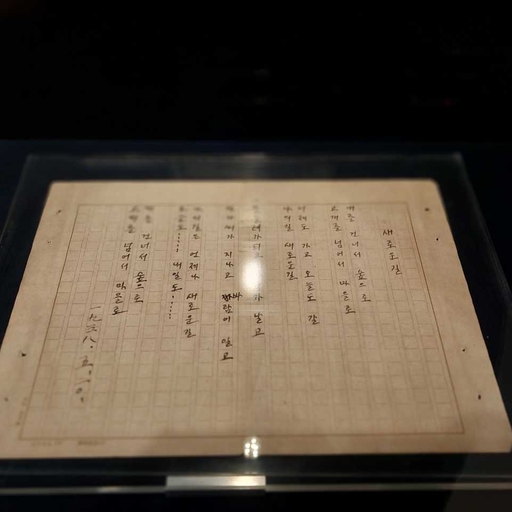 새로운길
내를 건너서 숲으로
고개를 넘어서 마을로
어제도 가고 오늘도 갈
나의길 새로운길
날고
지나고 바람이 일고
나의길은 언제나 새로운길
오늘도...... 내일도......
내를 건너서 숲으로
고개를 넘어서 마을로
一九三八.五.一〇.